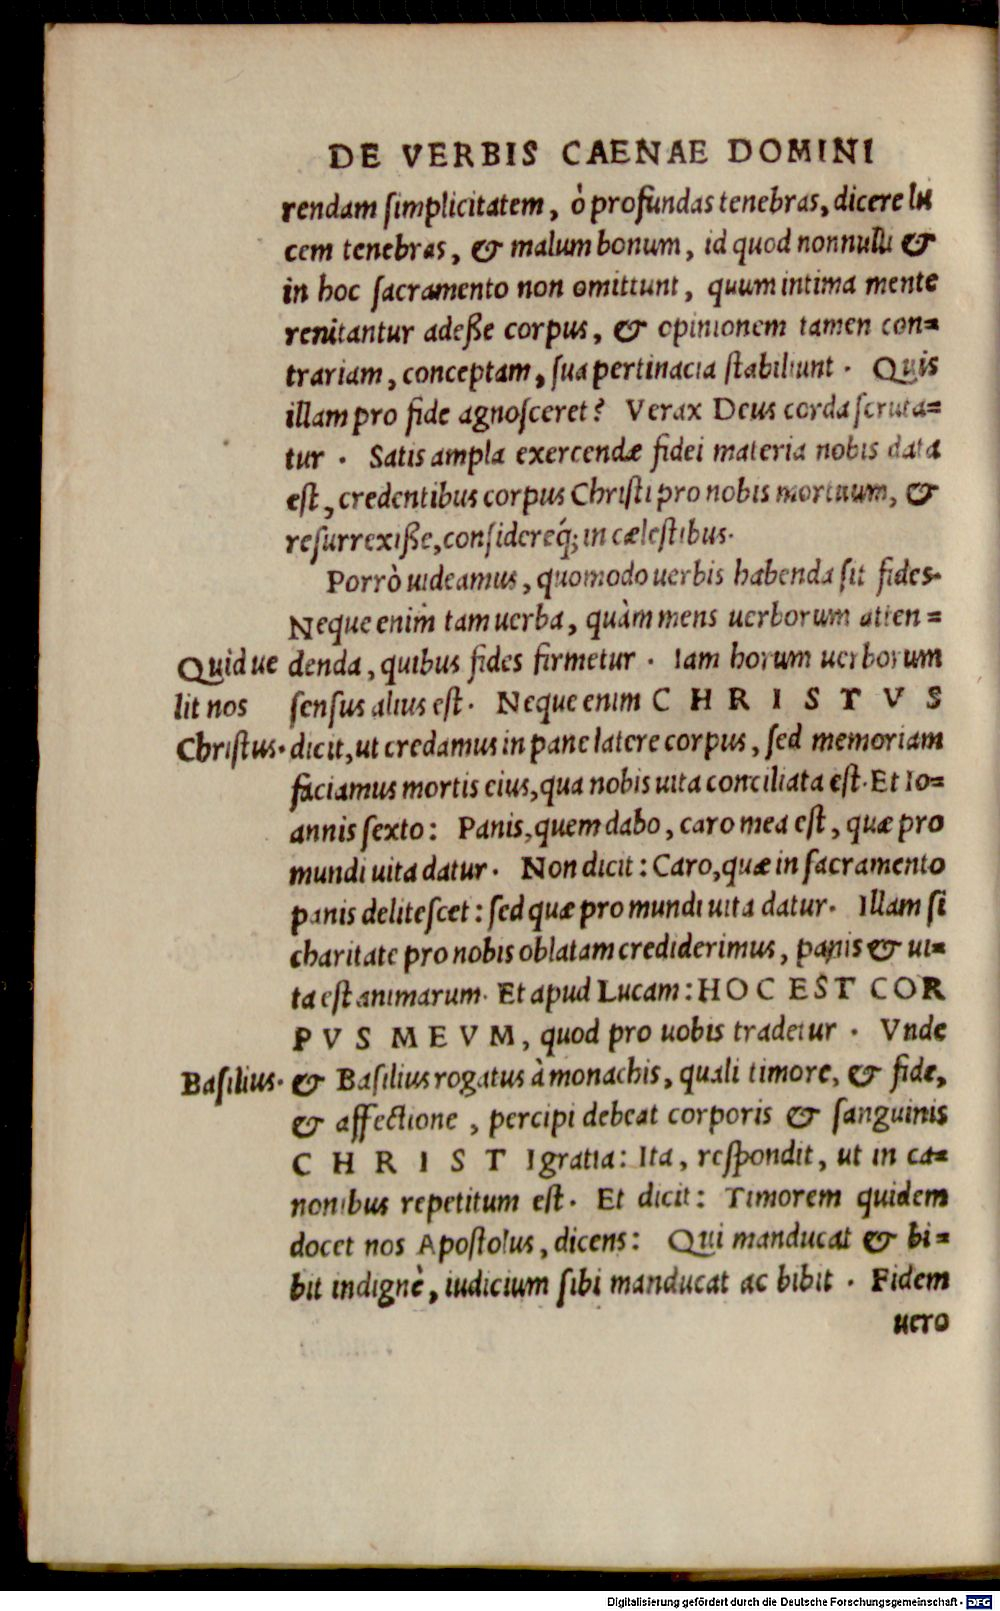 DE VERBIS CAENAE DOMINI
rendam ſimplicitatem, ò profundas tenebras, dicere lu
cem tenebras, & malum bonum, id quod nonnulli &
in hoc ſacramento non omittunt, quum intima mente
renitantur adeße corpus, & opinionem tamen con=
trariam, conceptam, ſua pertinacia ſtabiliunt. Quis
illam pro fide agnoſceret? Verax Deus corda ſcruta=
tur. Satis ampla exercendæ fidei materia nobis data
eſt, credentibus corpus Chriſti pro nobis mortuum, &
reſurrexiße, conſidereq́; in cæleſtibus.
Porrò uideamus, quomodo uerbis habenda ſit fides.
Neque enim tam uerba, quàm mens uerborum atten=
Quid ue denda, quibus fides firmetur. Iam horum uerborum
lit nos ſenſus alius eſt. Neque enim CHRISTVS
Chriſtus. dicit, ut credamus in pane latere corpus, ſed memoriam
faciamus mortis eius, qua nobis uita conciliata eſt. Et Io=
annis ſexto: Panis, quem dabo, caro mea eſt, quæ pro
mundi uita datur. Non dicit: Caro, quæ in ſacramento
panis deliteſcet: ſed quæ pro mundi uita datur. Illam ſi
charitate pro nobis oblatam crediderimus, panis & ui=
ta eſt animarum. Et apud Lucam: HOC EST COR
PVS MEVM, quod pro uobis tradetur. Vnde
Baſilius. & Baſilius rogatus à monachis, quali timore, & fide,
& affectione, percipi debeat corporis & ſanguinis
CHRISTI gratia: Ita, reſpondit, ut in ca=
nonibus repetitum eſt. Et dicit: Timorem quidem
docet nos Apoſtolus, dicens: Qui manducat & bi=
bit indignè, iudicium ſibi manducat ac bibit. Fidem
uero
Digitalisierung gefördert durch die Deutsche Forschungsgemeinschaft - DFG